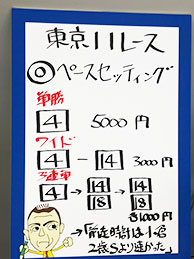 東京11レース
◎ペースセッティング
単勝
4 5000円
ワイド
4 - 14 3000円
3連単
4 → 14 18 → 14 18
各1000円
「前走時計は小倉
2歳Sより速かった」